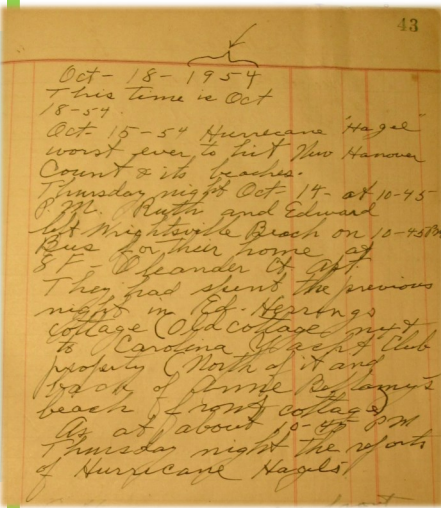 43
Oct - 18 - 1954
This time is Oct
18-54
Oct - 15 - 54 Hurrecane "Hagel"
worst ever to hit New Hanover
Count & its beaches.
Thursday night Oct - 14 - at 10-45
P.M. Ruth and Edward
left Wrightsville Beach on 10-45 PM
Bus for their home at
8 F - Oleander Ct Apt.
They had spent the previous
night in Ed - Herrings
cottage (Old cottage next
to Carolina Yacht Club
property (North of it and
back of Annie Bellamy's
beach front cottage)
As at about 10-45 PM
Thursday night the reports
of Hurricane Hagels